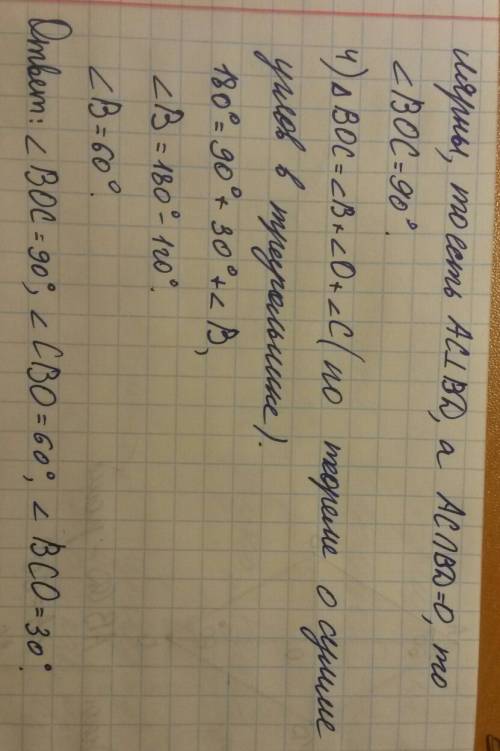 лярны, то есть AC⊥BD, а AC∩BD=O, то
∠BOC=90°.
4) △BOC=∠B+∠O+∠C (по теореме о сумме
углов в треугольнике).
180°=90°+30°+∠B,
∠B=180°-120°.
∠B=60°.
Ответ: ∠BOC=90°, ∠CBO=60°, ∠BCO=30°.